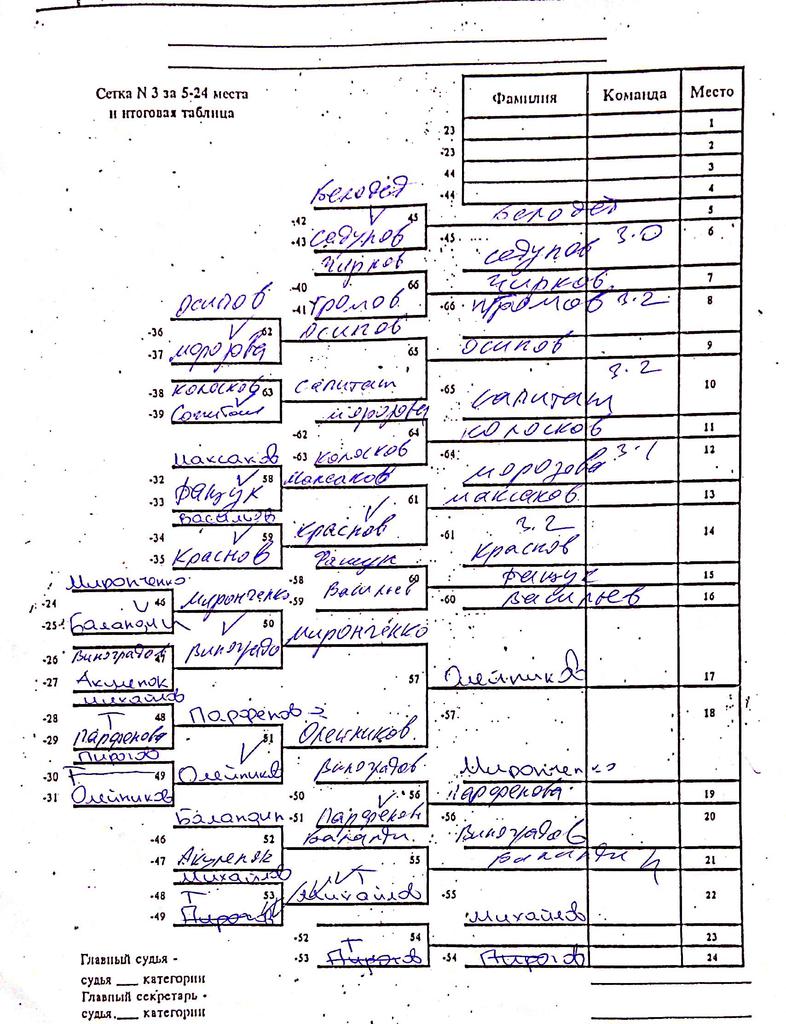 Сетка N 3 за 5-24 места
и итоговая таблица
Фамилия Команда Место
23 1
-23 2
44 3
-44 4
Белодед
-42 45 Белодед 5
-43 Садупов
-45 Садупов 3.0 6
Чирков
-40 66 Чирков 7
-41 Громов
-66 Громов 3.2 8
Осипов
-36 62 Осипов
-37 Морозова
65 Осипов 9
-38 Колосков 63 Сапиташ
-39
-65 Сапиташ 3.2 10
Морозова
-62 64 Колосков 11
-63 Колосков
-64 Морозова 3.1 12
Максаков
-32 58 Максаков
-33 Фащук
61 Максаков 13
Васильев
-34 59 Краснов
-35 Краснов
-61 3.2 Краснов 14
Фащук
-58 60 Фащук 15
-59 Васильев
-60 Васильев 16
Миронченко
-24 46 Миронченко
-25 Баландин
50 Миронченко
-26 Виноградов 47 Виноградо
-27 Акуленок
57 Олейников 17
Михайлов
-28 48 Парфенов
-29 Парфенова
51 Олейников
Пирогов
-30 49 Олейников
-31 Олейников
-57 Миронченко 18
Виноградов
-50 56 Парфенова 19
-51 Парфенов
-56 Виноградов 20
Баландин
-46 52 Баланди
-47 Акуленок
55 Баландин 21
Михайлов
-48 53 Михайлов
-49 Пирогов
-55 Михайлов 22
-52 54 23
-53 Пирогов
-54 Пирогов 24
Главный судья -
судья ___ категории
Главный секретарь -
судья ___ категории